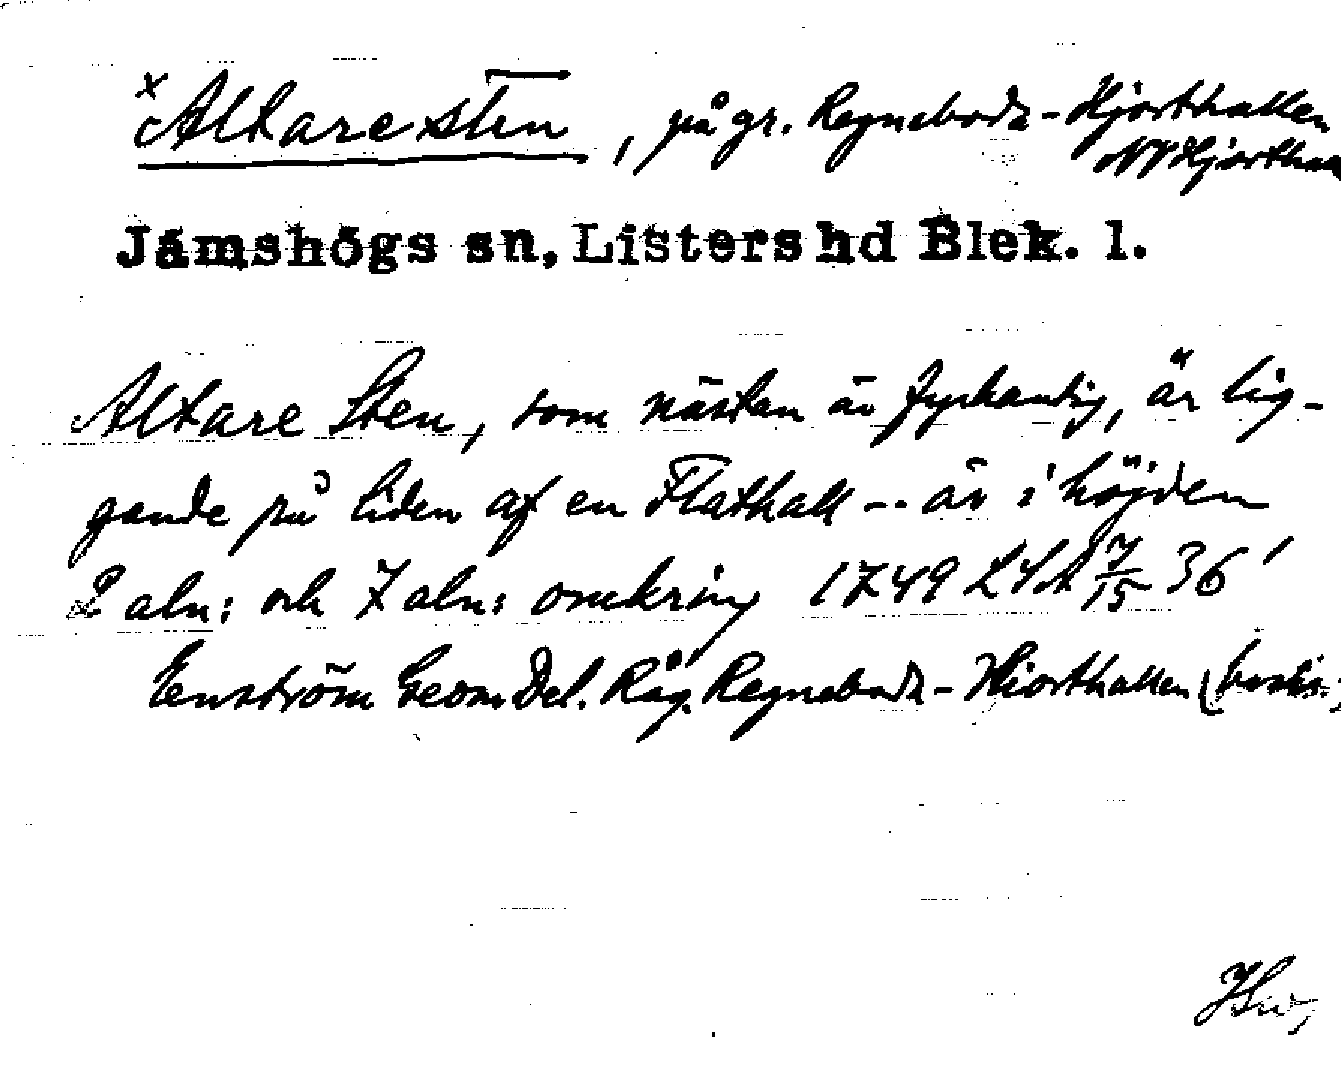 x Altaresten, på gr. Regnaboda-Hjorthallen
NV Hjortha
Jämshögs sn, Listers hd Blek. l.
Altare Sten, som nästan är fyrkantig, är lig-
gande på liden af en Flathall -- är i höjden
2 aln: och 7 aln: omkring 1749 LSA 7/15 36'
Enström Geom Del. Råg. Regnaboda-Hiorthallen